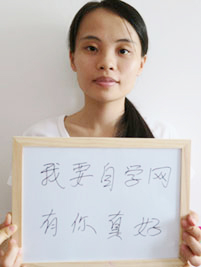 我要自学网
有你真好